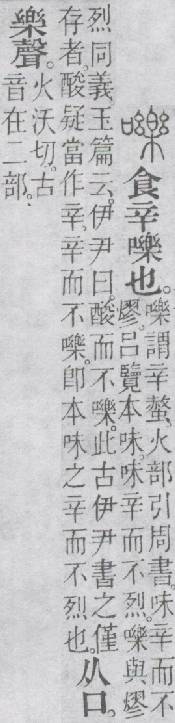 嚛食辛嚛也。嚛謂辛螫。火部引周書。味辛而不
熮。呂覽本味。味辛而不烈。嚛與熮
烈同義。玉篇云。伊尹曰酸而不嚛。此古伊尹書之僅
存者。酸疑當作辛。辛而不嚛。卽本味之辛而不烈也。从口。
樂聲。火沃切。古
音在二部。